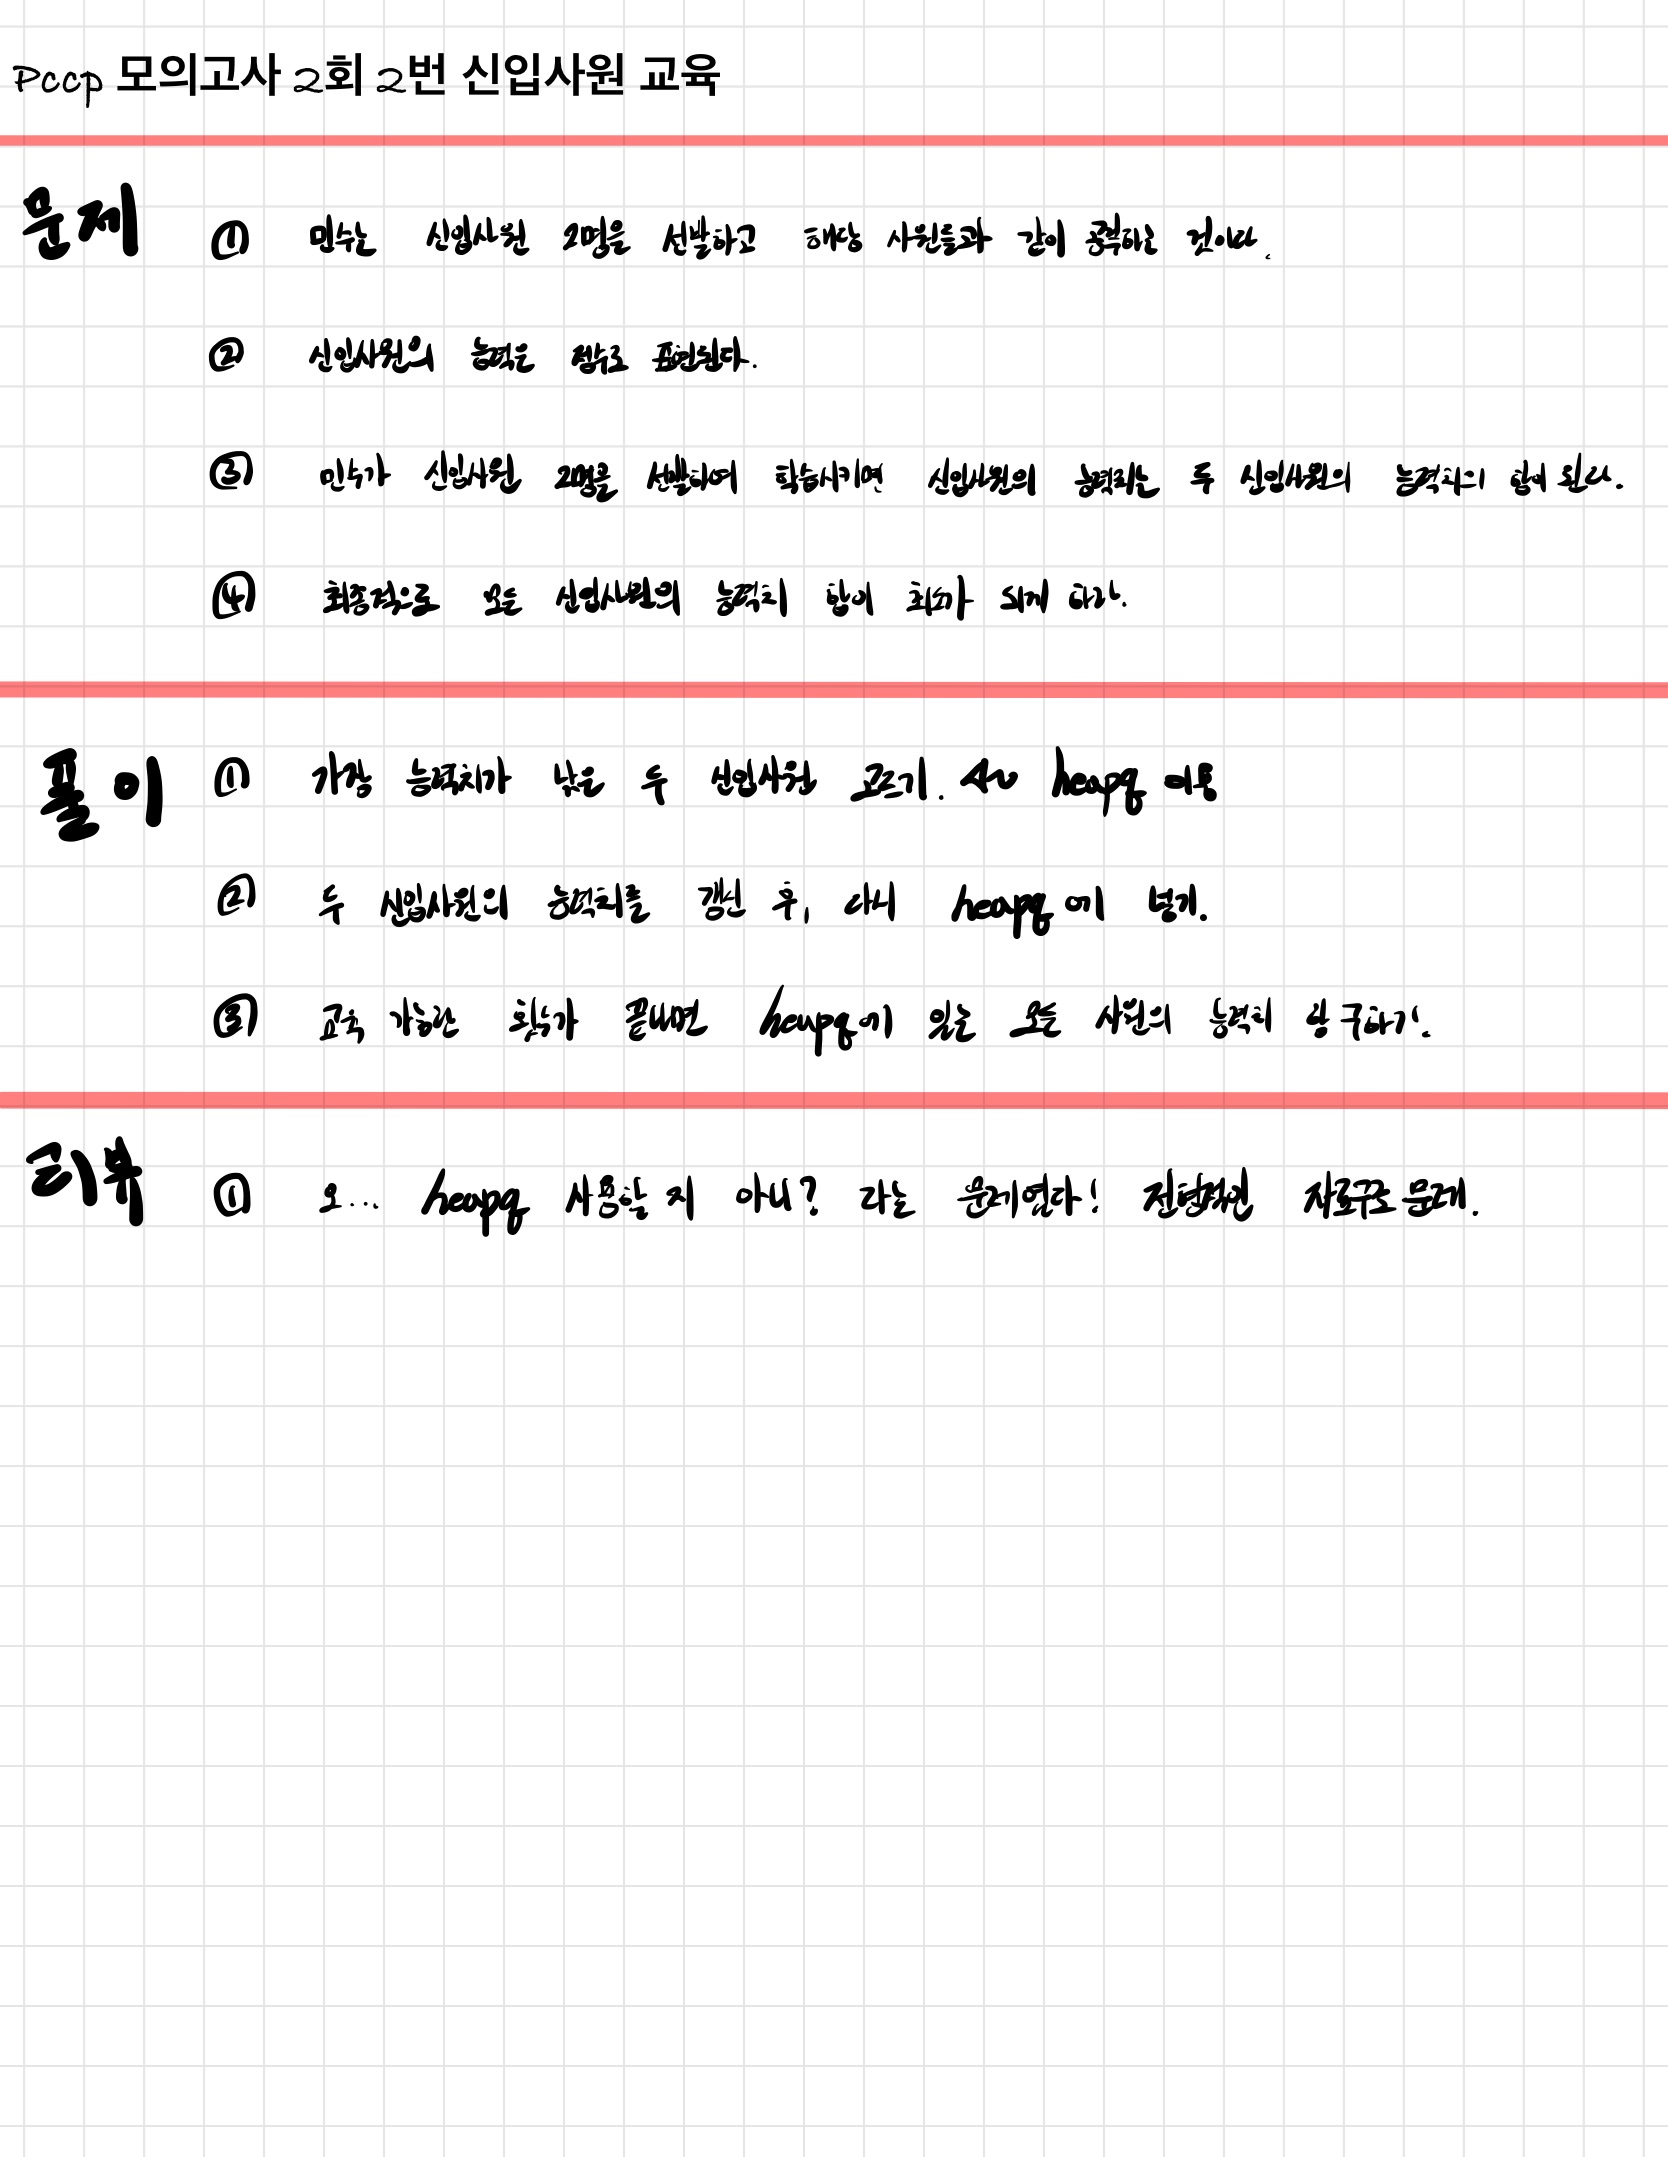 Pccp 모의고사 2회 2번 신입사원 교육
문제 ① 민수는 신입사원 2명을 선발하고 해당 사원들과 같이 공부하는 것이다.
② 신입사원의 능력은 점수로 표현된다.
③ 민수가 신입사원 2명을 선발하여 학습시키면 신입사원의 능력치는 두 신입사원의 능력치의 합이 된다.
④ 최종적으로 모든 신입사원의 능력치 합이 최소가 되게 하라.
풀이 ① 가장 능력치가 낮은 두 신입사원 고르기. heapq 이용
② 두 신입사원의 능력치를 갱신 후, 다시 heapq에 넣기.
③ 교육 가능한 횟수가 끝나면 heapq에 있는 모든 사원의 능력치 합 구하기.
리뷰 ① 오... heapq 사용할 지 아니? 라는 문제였다! 전형적인 자료구조 문제.